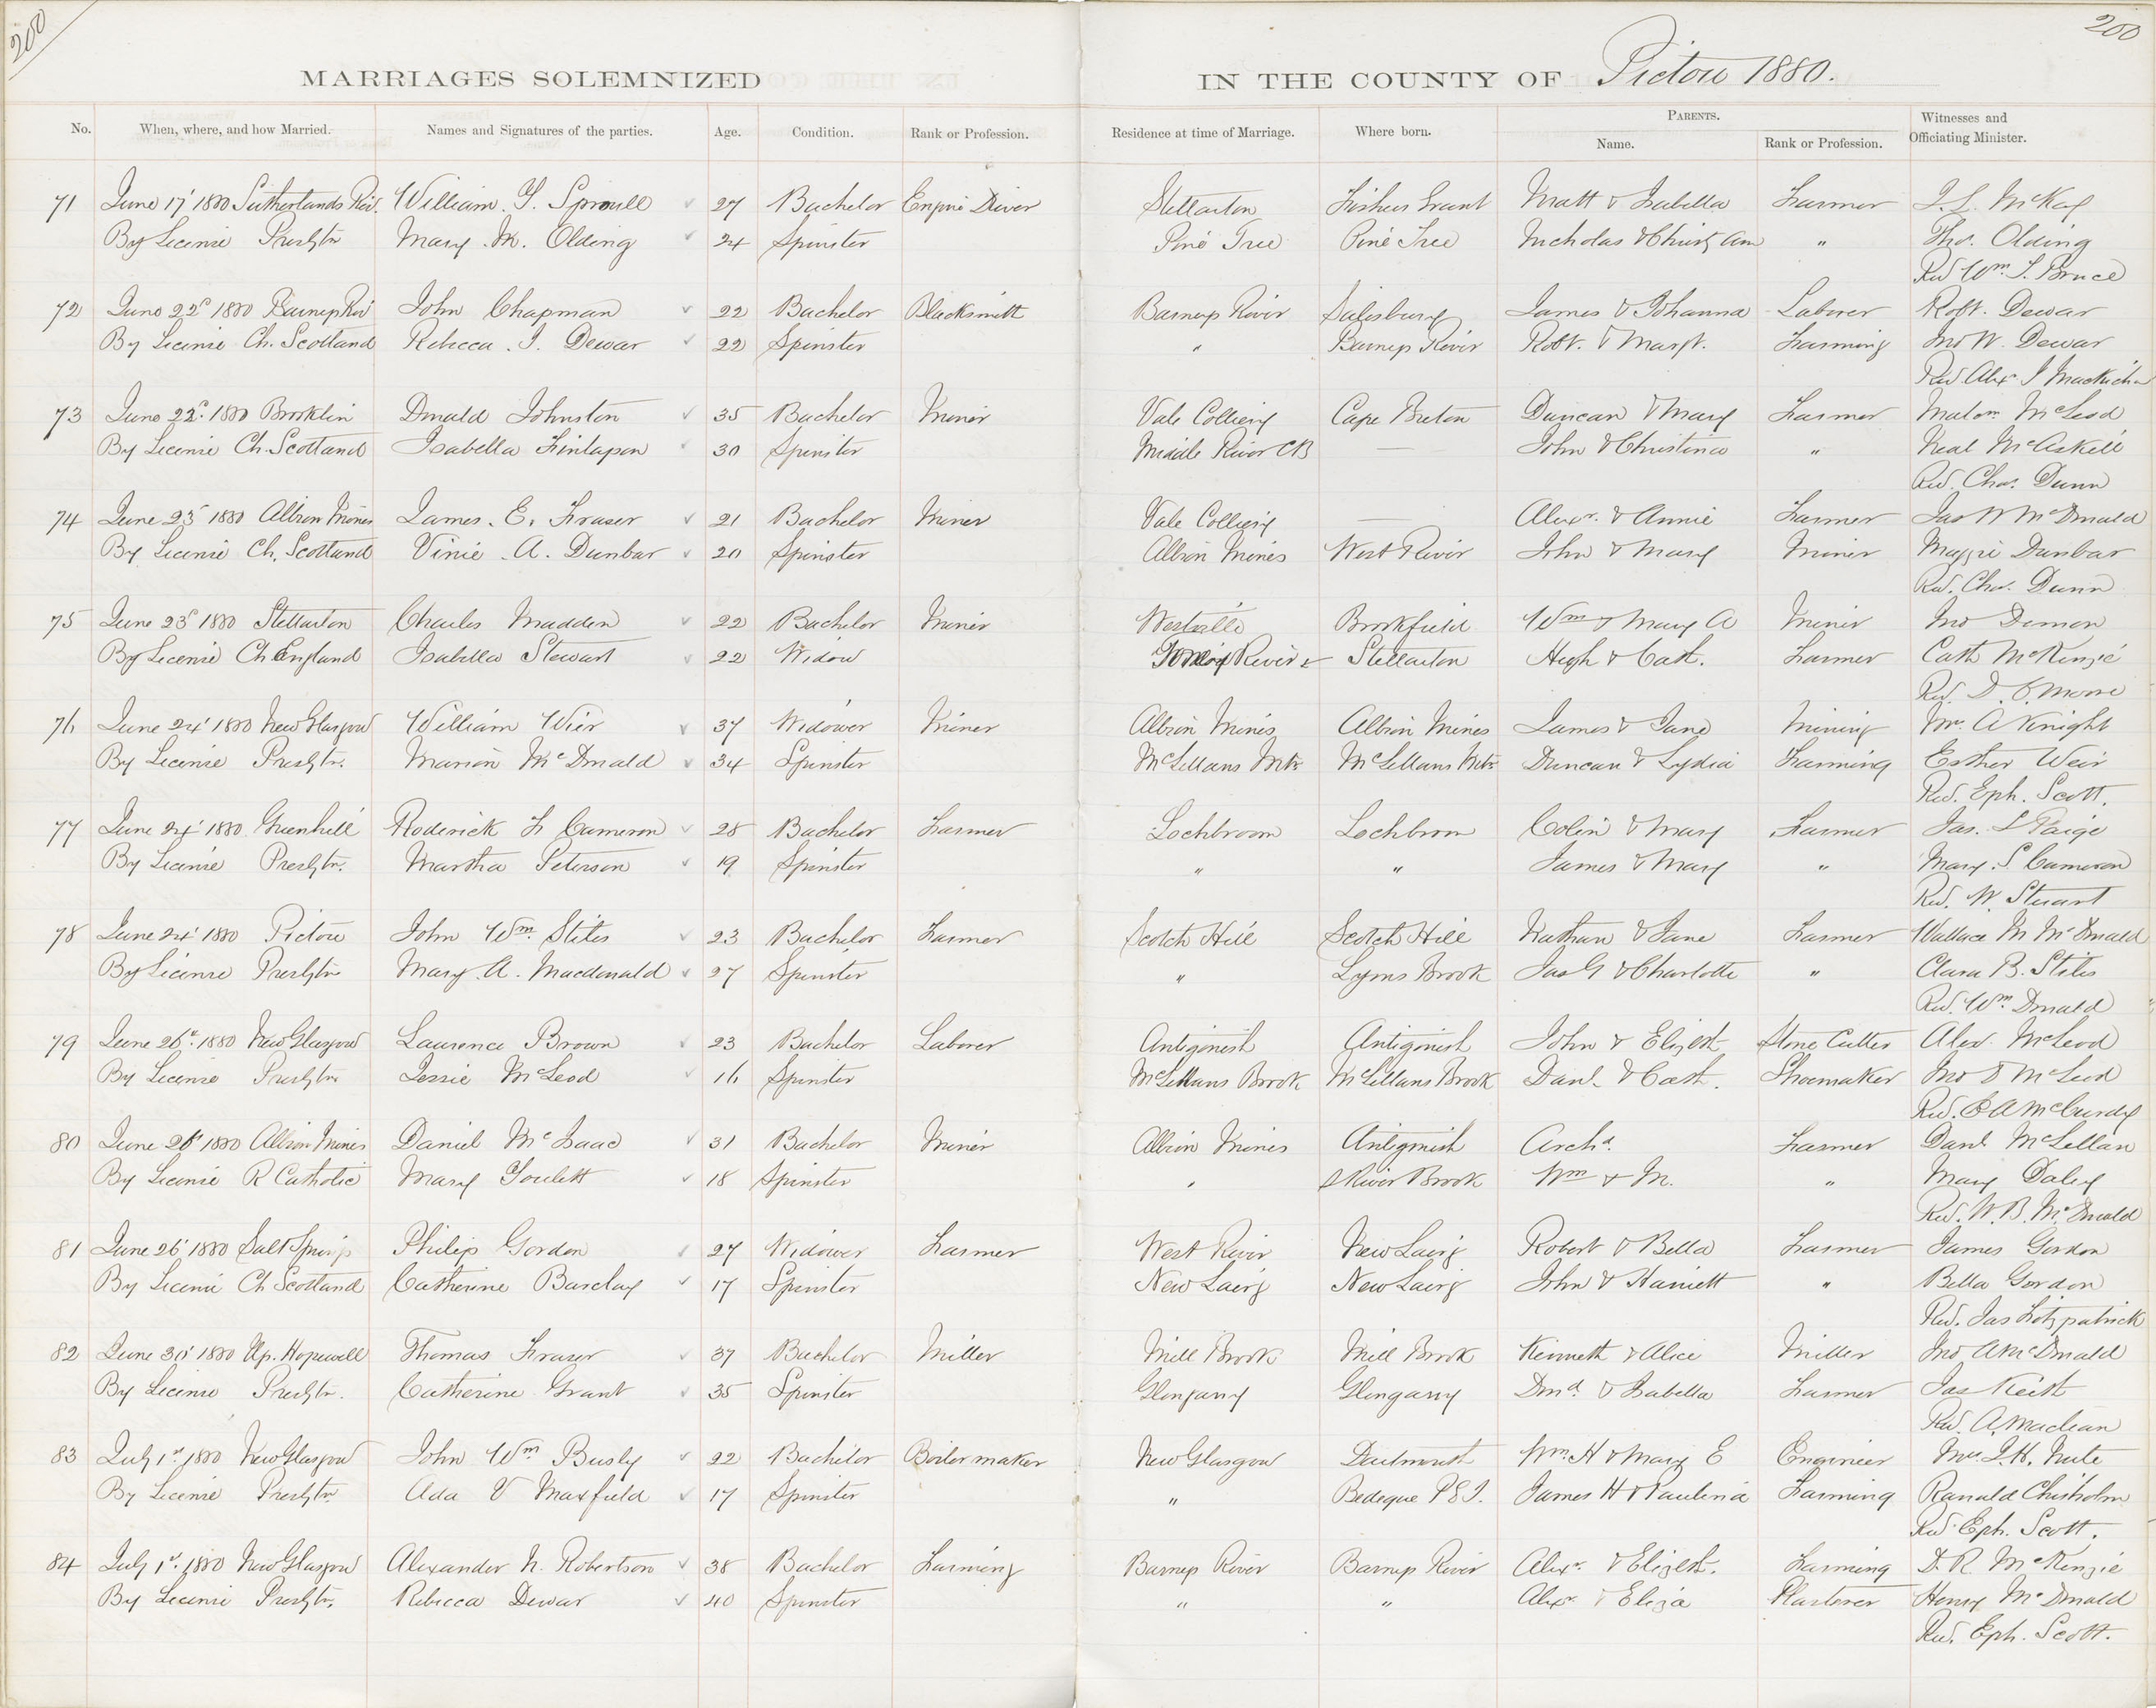 200
200
MARRIAGES SOLEMNIZED IN THE COUNTY OF Pictou 1880.
No. When, where, and how Married. Names and Signatures of the parties. Age. Condition. Rank or Profession. Residence at time of Marriage. Where born. PARENTS. Name. Rank or Profession. Witnesses and Officiating Minister.
71 June 17' 1880 Sutherlands Riv. William Y. Sproull 27 Bachelor Engine Driver Stellarton Fishers Grant Matt & Isabella Farmer J. L. McKay
By License Presbtn Mary M. Olding 24 Spinster Pine Tree Pine Tree Nicholas & Christy Ann " Thos. Olding
Rev Wm. T. Bruce
72 June 22d 1880 Barneys Riv John Chapman 22 Bachelor Blacksmith Barneys River Salesbury James & Johanna Laborer Robt. Dewar
By License Ch. Scotland Rebecca J. Dewar 22 Spinster " Barneys River Robt. & Margt. Farming Jno W. Dewar
Rev Alexr J
73 June 22d. 1880 Brooklin Donald Johnston 35 Bachelor Miner Vale Colliery Cape Breton Duncan & Mary Farmer Malcm McLeod
By License Ch. Scotland Isabella Finlayson 30 Spinster Middle River CB — John & Christina " Neal McAskill
Rev. Chas. Dunn
74 June 23d 1880 Albion Mines James E. Fraser 21 Bachelor Miner Vale Colliery — Alexr. & Annie Farmer Jas W McDonald
By License Ch. Scotland Vinie A. Dunbar 20 Spinster Albion Mines West River John & Mary Miner Maggie Dunbar
Rev. Chas. Dunn
75 June 23d 1880 Stellarton Charles Madden 22 Bachelor Miner Westville Brookfield Wm & Mary A Miner Jno Demon
By License Ch England Isabella Stewart 22 Widow River Stellarton Hugh & Cath. Farmer Cath McKenzie
Rev. D. C. Moore
76 June 24' 1880 New Glasgow William Wier 37 Widower Miner Albion Mines Albion Mines James & Jane Mining Mr. A Knight
By License Presbtn. Marion McDonald 34 Spinster McLellans Mtn McLellans Mtn Duncan & Lydia Farming Esther Weir
Rev. Eph. Scott.
77 June 24' 1880 Greenhill Roderick F Cameron 28 Bachelor Farmer Lochbroom Lochbrom Colin & Mary Farmer Jas. L Paige
By License Presbtn. Martha Peterson 19 Spinster " " James & Mary " Mary S Cameron
Rev. W. Stuart
78 June 24' 1880 Pictou John Wm. Stiles 23 Bachelor Farmer Scotch Hill Scotch Hill Nathan & Jane Farmer Wallace M McDonald
By License Presbtn Mary A. Macdonald 27 Spinster " Lyons Brook Jas G & Charlotte " Clara B. Stiles
Rev. Wm Donald
79 June 26t. 1880 New Glasgow Laurence Brown 23 Bachelor Laborer Antigonish Antigonish John & Elizbth Stone Cutter Alex. McLeod
By License Presbtn Jessie McLeod 16 Spinster McLellans Brook McLellans Brook Danl. & Cath. Shoemaker Jno D McLeod
Rev. E A McCurdy
80 June 26' 1880 Albion Mines Daniel McIsaac 31 Bachelor Miner Albion Mines Antigonish Archd. Farmer Danl McLellan
By License R Catholic Mary Goulett 18 Spinster " River Brook Wm & M. " Mary Daley
Rev. W. B. McDonald
81 June 26' 1880 Salt Springs Philip Gordon 27 Widower Farmer West River New Lairg Robert & Bella Farmer James Gordon
By License Ch Scotland Catherine Barclay 17 Spinster New Lairg New Lairg John & Harriett " Bella Gordon
Rev. Jas Fitzpatrick
82 June 30' 1880 Up. Hopewell Thomas Fraser 37 Bachelor Miller Mill Brook Mill Brook Kenneth & Alice Miller Jno A McDonald
By License Presbtn. Catherine Grant 35 Spinster Glengarry Glengarry Dond. & Isabella Farmer Jas Keith
Rev. A. Maclean
83 July 1st 1880 New Glasgow John Wm Busly 22 Bachelor Boiler maker New Glasgow Dartmouth Wm. H & Mary E Engineer Mrs. J. H. Mute
By License Presbtn. Ada V Maxfield 17 Spinster " Bedeque P E I. James H & Paulina Farming Ranald Chisholm
Rev. Eph. Scott.
84 July 1st. 1880 New Glasgow Alexander N. Robertson 38 Bachelor Farming Barneys River Barneys River Alexr. & Elizbth. Farming D. R. McKenzie
By License Presbtn. Rebecca Dewar 40 Spinster " " Alexr. & Eliza Plasterer Henry McDonald
Rev. Eph. Scott.